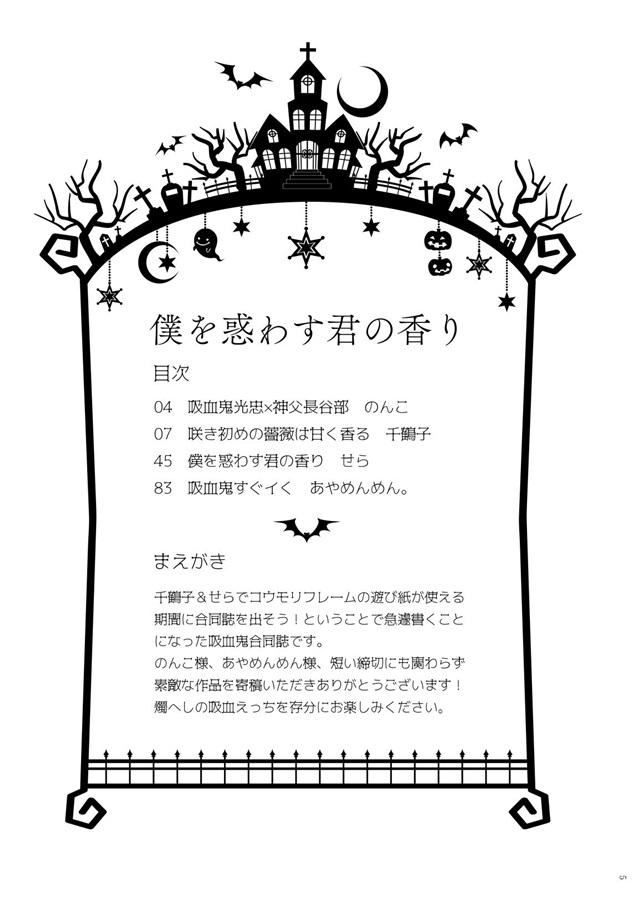 僕を惑わす君の香り
目次
04　吸血鬼光忠×神父長谷部　のんこ
07　咲き初めの薔薇は甘く香る　千鶴子
45　僕を惑わす君の香り　せら
83　吸血鬼すぐイく　あやめんめん。
まえがき
千鶴子＆せらでコウモリフレームの遊び紙が使える
期間に合同誌を出そう！ということで急遽書くこと
になった吸血鬼合同誌です。
のんこ様、あやめんめん様、短い締切にも関わらず
素敵な作品を寄稿いただきありがとうございます！
燭へしの吸血えっちを存分にお楽しみください。
5